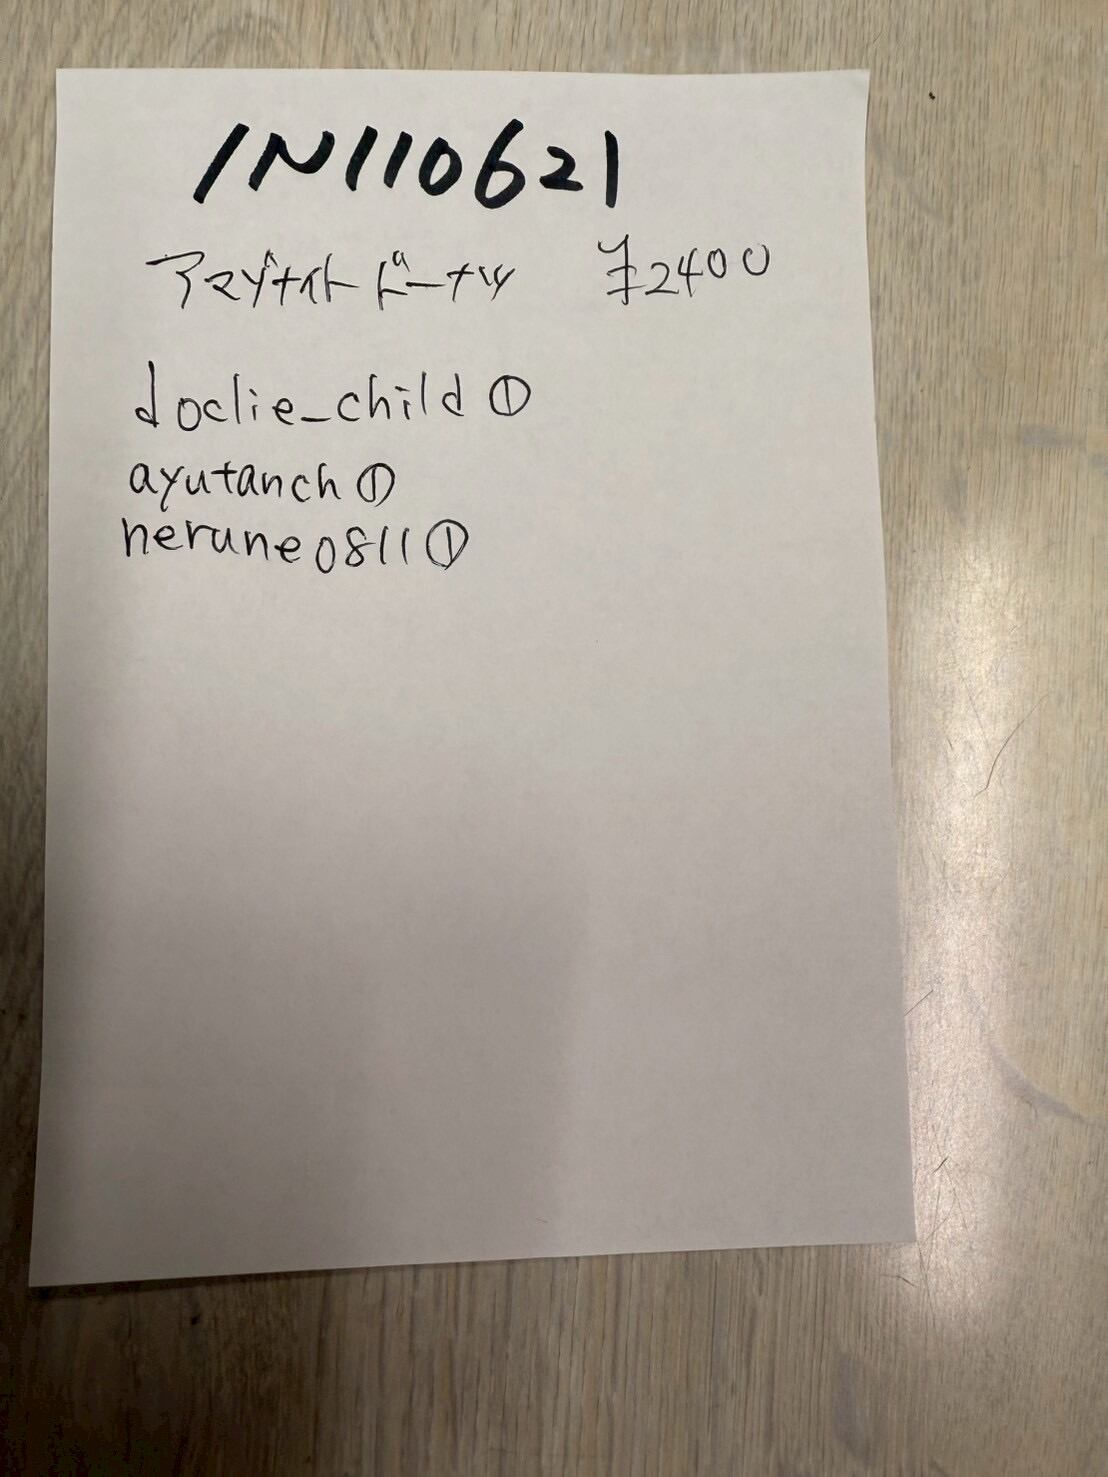 IN110621
アマゾナイトドーナツ ¥2400
doclie_child①
ayutanch①
nerune0811①